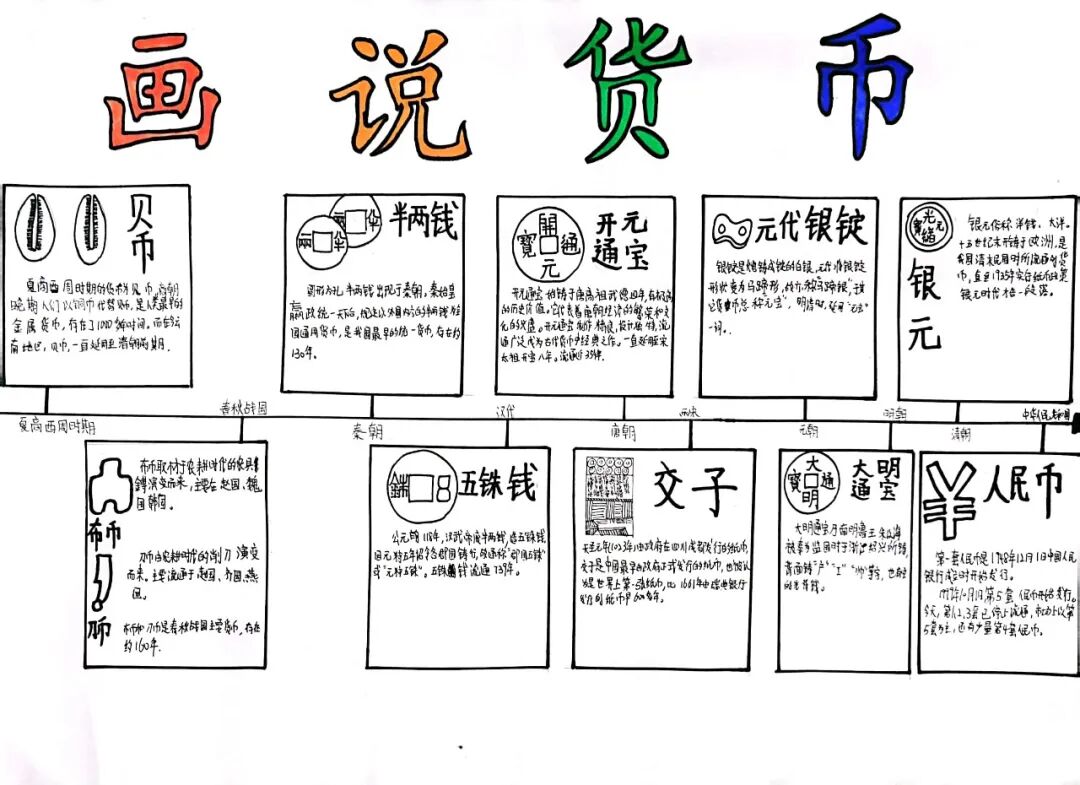 画说货币
贝币
夏商西周时期的货币为贝币,商朝
晚期人们以铜币代替贝币,是人类最早的
金属货币,存在了1000余年时间,而在云
南地区,贝币一直延用至清朝初期.
半两钱
圆形方孔半两钱出现于秦朝,秦始皇
嬴政统一天下后,规定以外圆内方的半两钱为全
国通用货币,是我国最早的统一货币,存在约
130年.
半两
半两
開元通寳
开元
通宝
开元通宝始铸于唐高祖武德四年,有极高
的历史价值。它代表着唐朝经济的繁荣和文
化的兴盛。开元通宝制作精良,设计独特,流
通广泛成为古代货币中经典之作。一直延用至宋
太祖开宝八年。
元代银锭
银锭是熔铸成锭的白银,元代准银锭
形状变为马蹄形,故有称"马蹄银",于
一词.
光緒元寳
银元
银元俗称洋钱、大洋.
十五世纪末始铸于欧洲,是
我国清末民国时所流通的货
币,直至1935年实行纸币政策
银元时代才告一段落.
夏商西周时期
春秋战国
秦朝
汉代
唐朝
两宋
元朝
明朝
清朝
中华人民共和国
布币
布币取材于农耕时代的农具青
铜镈演变而来,主要在赵国、魏
国、韩国.
刀币由农耕时代的削刀演变
而来.主要流通于赵国、齐国、燕
国.
刀币
布币和刀币是春秋战国主要货币,存在
约160年.
五铢钱
五銖
公元前118年,汉武帝废半两钱,造五铢钱
因元狩五年诏令各郡国铸行,故通称"郡国五铢"
或"元狩五铢"。五铢钱流通739年.
交子
天圣元年(1023年)由政府在四川成都发行的纸币,
交子是中国最早由政府正式发行的纸币,也被认
为是世界上第一张纸币,比1661年由瑞典银行
发行的纸币早600多年.
大明通寳
大明
通宝
大明通宝乃南明鲁王朱以海
被奉为监国时于浙江绍兴所铸,
背面铸"户""工""帅"等,也有
的光背钱.
¥
人民币
第一套人民币是1948年12月1日中国人民
银行成立时开始发行.
1999年10月1日第5套人民币开始发行.
今天,第1、2、3套已停止流通,市场上以第
5套为主,也有少量第4套人民币.